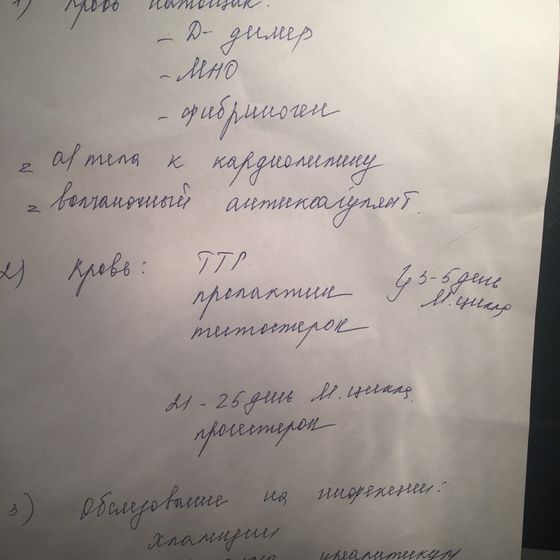 1) Кровь натощак:
- Д-димер
- МНО
- Фибриноген
- Ат тела к кардиолипину
- Волчаночный антикоагулянт.
2) Кровь: ТТГ
пролактин } 3-5 день
тестостерон М.цикла
21-25 день М.цикла.
прогестерон
3) Обследование на инфекции:
хламидии
уреаплазму